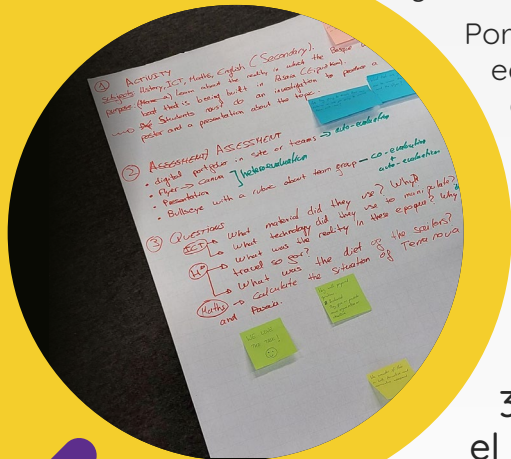 Por
ec
① ACTIVITY
Subjects: History, ICT, Maths, English (Secondary).
purpose: learn about the reality in what the Basque
boat that is being built in Pasaia (Gipuzkoa).
Students must do an investigation to produce a
poster and a presentation about the topic.
② ASSIGNMENT/ ASSESSMENT
• digital portfolio in site or teams → auto-evaluation
• Flyer → canva
• Presentation
heteroevaluation
• Bullseye with a rubric about team group — co-evaluation
+
auto-evaluation
③ QUESTIONS
ICT
What material did they use? Why?
What technology did they use to manipulate?
Hº
What was the reality in these epoque? Why
travel so far?
What was the diet of the sailors?
Maths → Calculate the situation of Terranova
and Pasaia.
3
el